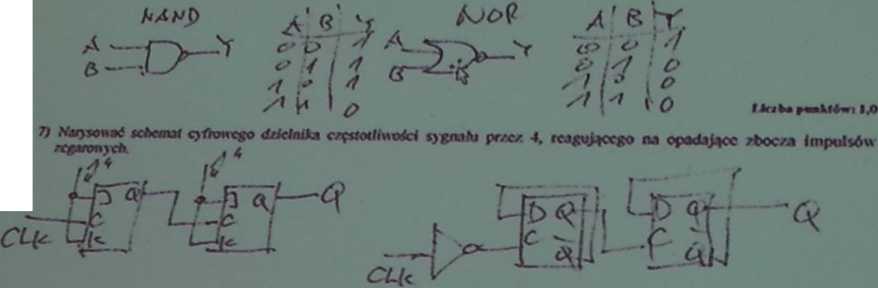 NAND NOR
A B Y A B Y
A Y 0 0 1 A Y 0 0 1
B 0 1 1 B 0 1 0
1 0 1 1 0 0
1 1 0 1 1 0
Liczba punktów: 1,0
7) Narysować schemat cyfrowego dzielnika częstotliwości sygnału przez 4, reagującego na opadające zbocza impulsów
zegarowych.
J Q J Q Q D Q D Q Q
C C C Q C Q
CLK K K
CLK